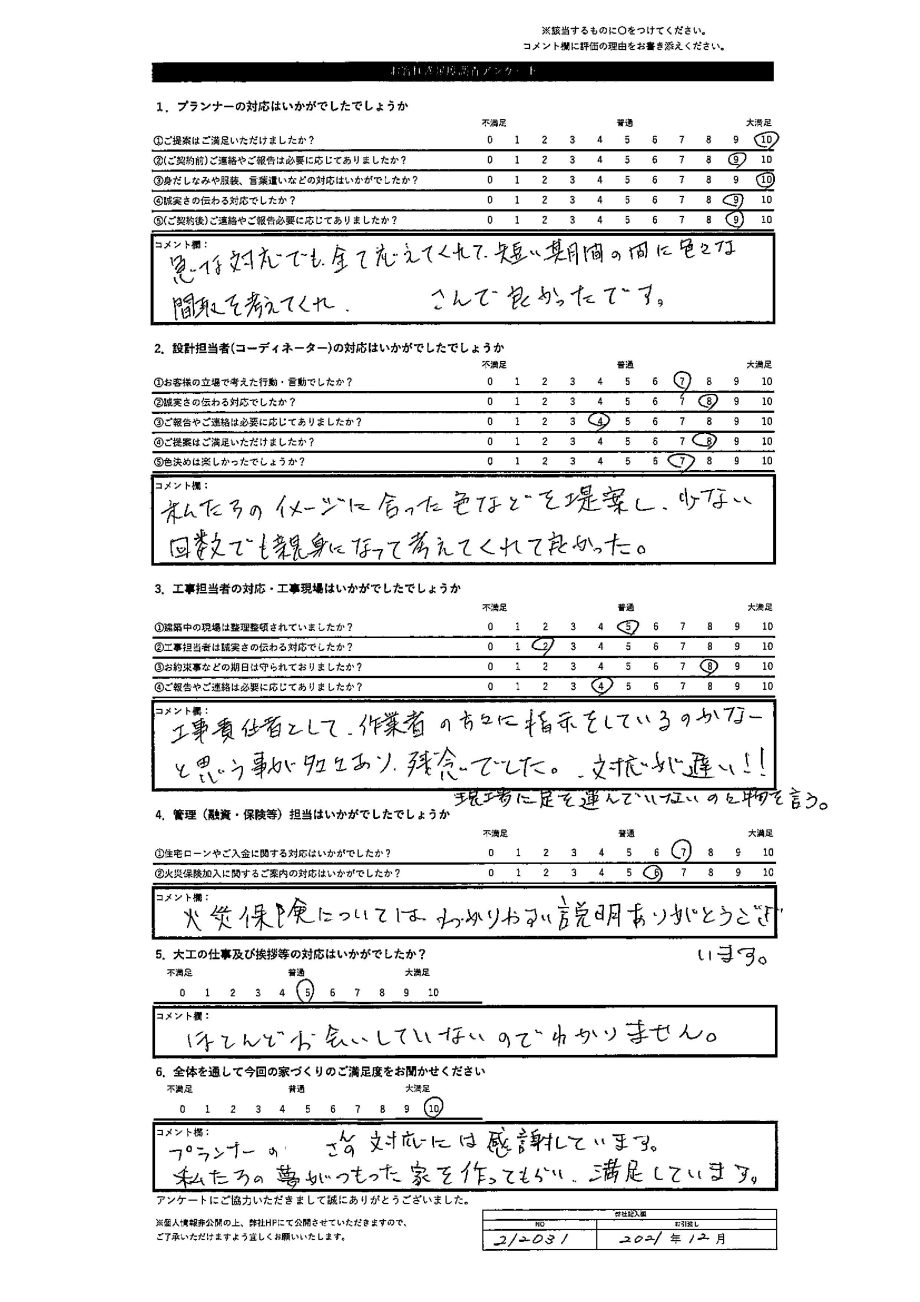 ※該当するものに〇をつけてください。
コメント欄に評価の理由をお書き添えください。
お客様満足度調査アンケート
1．プランナーの対応はいかがでしたでしょうか
不満足 普通 大満足
①ご提案はご満足いただけましたか？ 0 1 2 3 4 5 6 7 8 9 10
②(ご契約前)ご連絡やご報告は必要に応じてありましたか？ 0 1 2 3 4 5 6 7 8 9 10
③身だしなみや服装、言葉遣いなどの対応はいかがでしたか？ 0 1 2 3 4 5 6 7 8 9 10
④誠実さの伝わる対応でしたか？ 0 1 2 3 4 5 6 7 8 9 10
⑤(ご契約後)ご連絡やご報告必要に応じてありましたか？ 0 1 2 3 4 5 6 7 8 9 10
コメント欄：
急な対応でも、全て応えてくれて、短い期間の間に色々な
間取を考えてくれ、 さんで良かったです。
2．設計担当者(コーディネーター)の対応はいかがでしたでしょうか
不満足 普通 大満足
①お客様の立場で考えた行動・言動でしたか？ 0 1 2 3 4 5 6 7 8 9 10
②誠実さの伝わる対応でしたか？ 0 1 2 3 4 5 6 7 8 9 10
③ご報告やご連絡は必要に応じてありましたか？ 0 1 2 3 4 5 6 7 8 9 10
④ご提案はご満足いただけましたか？ 0 1 2 3 4 5 6 7 8 9 10
⑤色決めは楽しかったでしょうか？ 0 1 2 3 4 5 6 7 8 9 10
コメント欄：
私たちのイメージに合った色などを提案し、少ない
回数でも親身になって考えてくれて良かった。
3．工事担当者の対応・工事現場はいかがでしたでしょうか
不満足 普通 大満足
①建築中の現場は整理整頓されていましたか？ 0 1 2 3 4 5 6 7 8 9 10
②工事担当者は誠実さの伝わる対応でしたか？ 0 1 2 3 4 5 6 7 8 9 10
③お約束事などの期日は守られておりましたか？ 0 1 2 3 4 5 6 7 8 9 10
④ご報告やご連絡は必要に応じてありましたか？ 0 1 2 3 4 5 6 7 8 9 10
コメント欄：
工事責任者として、作業者の方々に指示をしているのかなー
と思う事が多々あり、残念でした。、対応が遅い!!
現場に足を運んでいないのに物を言う。
4．管理（融資・保険等）担当はいかがでしたでしょうか
不満足 普通 大満足
①住宅ローンやご入金に関する対応はいかがでしたか？ 0 1 2 3 4 5 6 7 8 9 10
②火災保険加入に関するご案内の対応はいかがでしたか？ 0 1 2 3 4 5 6 7 8 9 10
コメント欄：
火災保険についてはわかりやすい説明ありがとうござ
います。
5．大工の仕事及び挨拶等の対応はいかがでしたか？
不満足 普通 大満足
0 1 2 3 4 5 6 7 8 9 10
コメント欄：
ほとんどお会いしていないのでわかりません。
6．全体を通して今回の家づくりのご満足度をお聞かせください
不満足 普通 大満足
0 1 2 3 4 5 6 7 8 9 10
コメント欄：
プランナーの さんの対応には感謝しています。
私たちの夢がつもった家を作ってもらい、満足しています。
アンケートにご協力いただきまして誠にありがとうございました。
※個人情報非公開の上、弊社HPにて公開させていただきますので、
ご了承いただけますよう宜しくお願いいたします。
弊社記入欄
NO お引渡し
212031 2021年12月